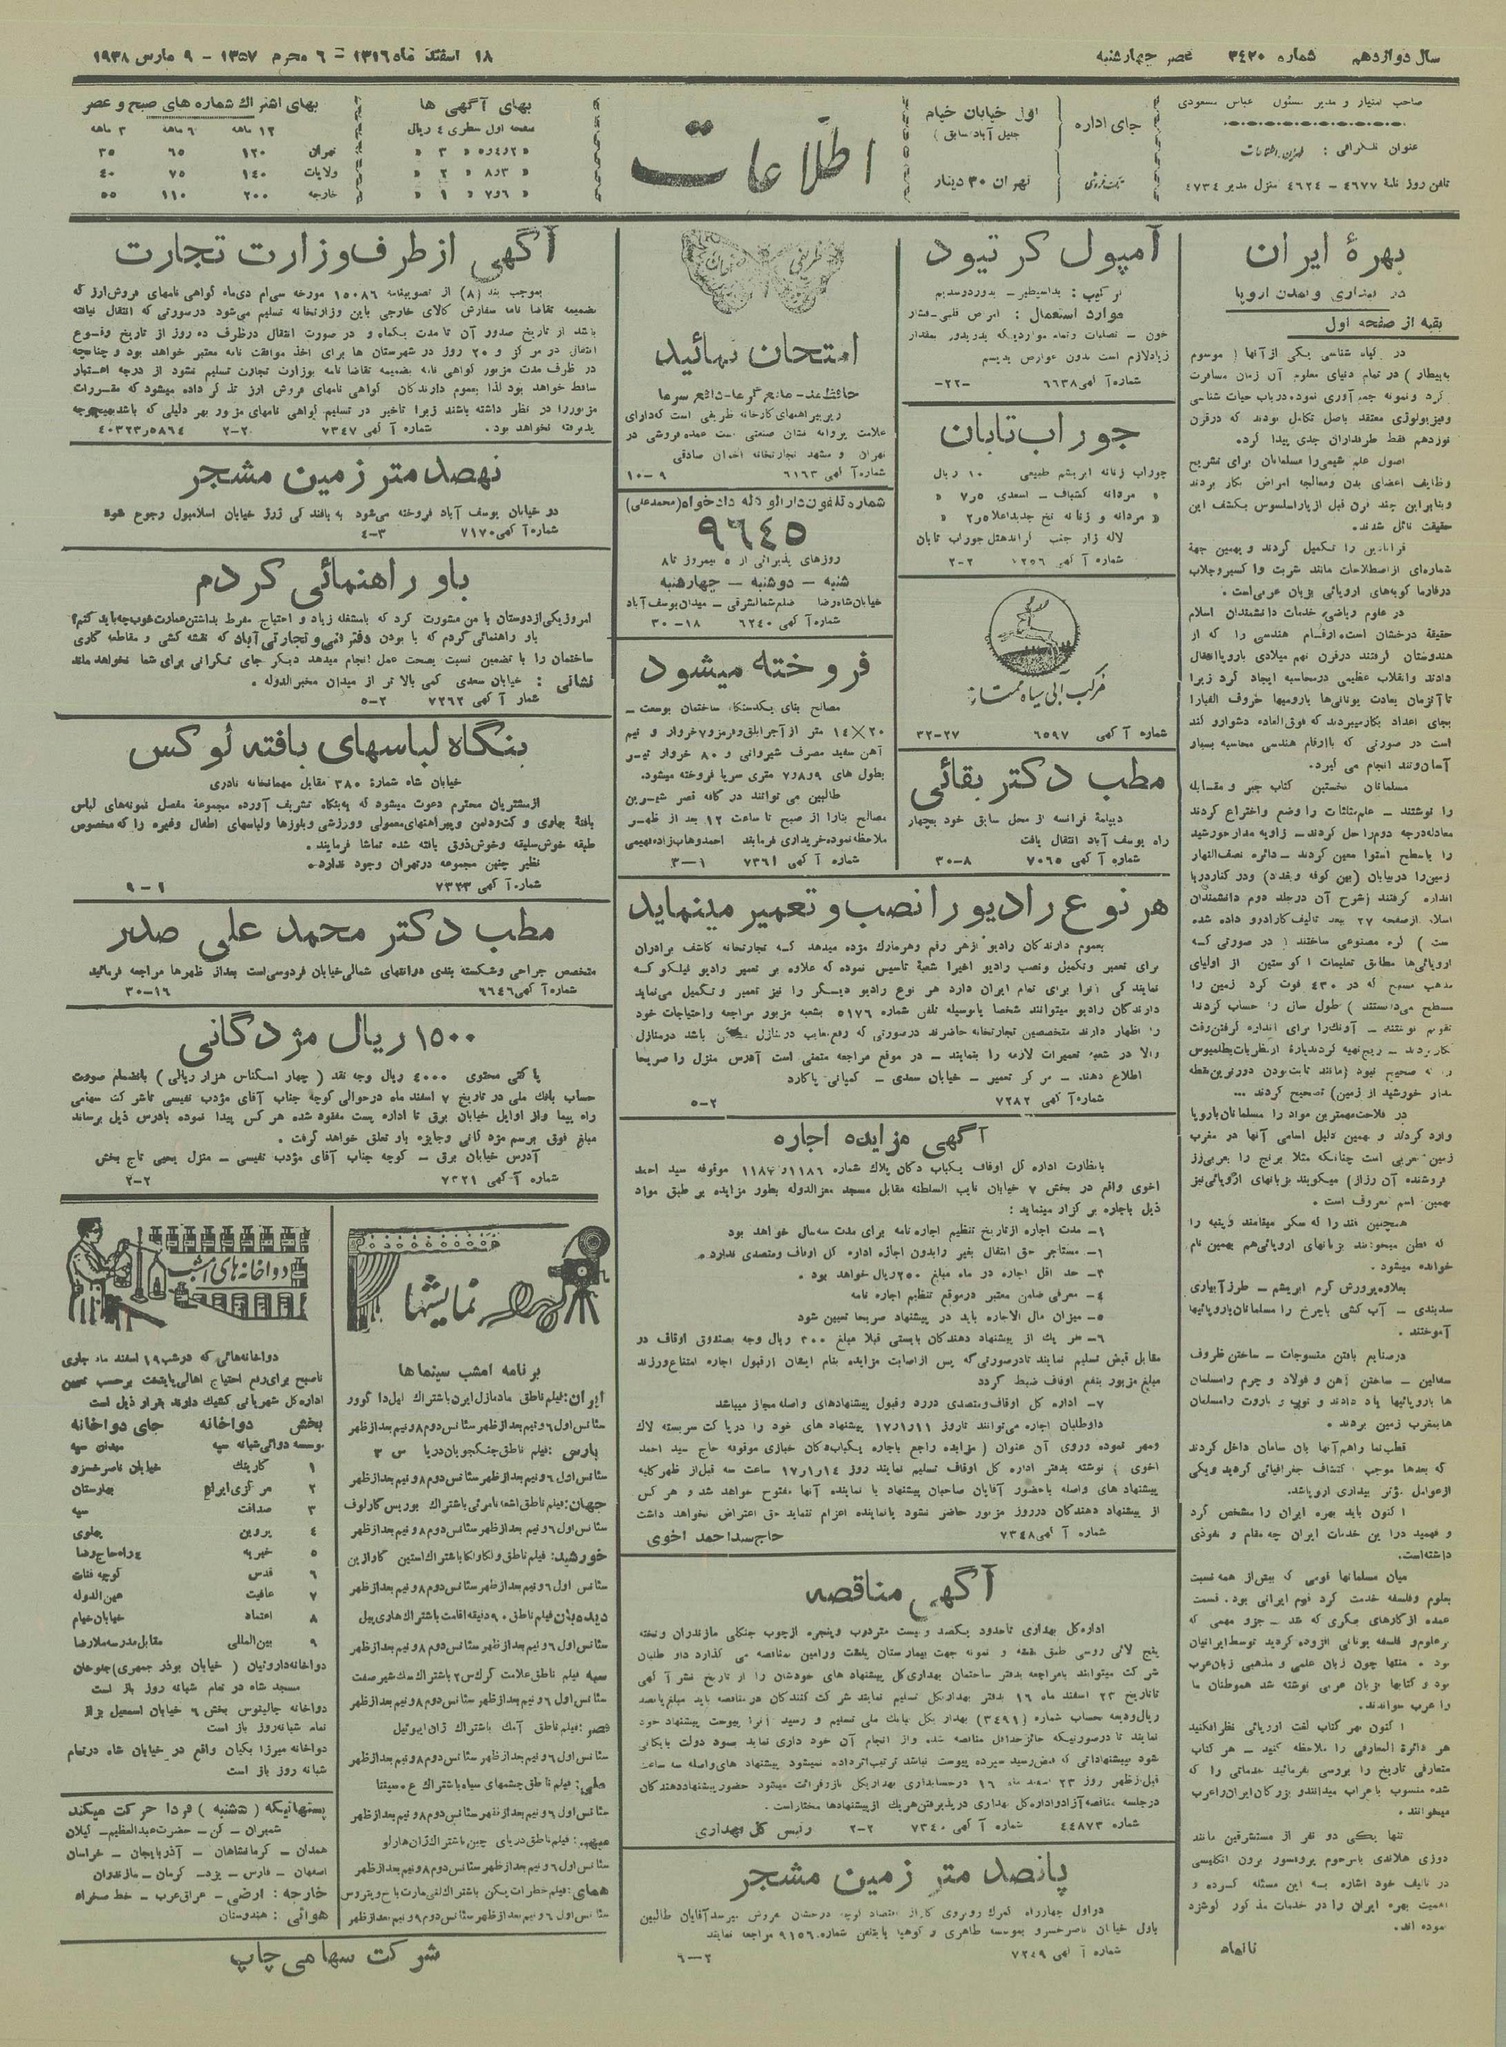 سال دوازدهم شماره ۳۴۲۰ عصر چهارشنبه
۱۸ اسفند ماه ۱۳۱۶ = ۶ محرم ۱۳۵۷ – ۹ مارس ۱۹۳۸
صاحب امتیاز و مدیر مسئول عباس مسعودی
عنوان تلگرافی : طهران، اطلاعات
تلفن روزنامه ۴۶۷۷ – ۴۶۲۴ منزل مدیر ۴۷۳۴
جای اداره
اول خیابان خیام
( جلیل آباد سابق )
تهران ۳۰ دینار
اطلاعات
بهای آگهی ها
صفحه اول سطری ۴ ریال
» ۲ر۴ر۵ » ۳ »
» ۳ر۸ » ۲ »
» ۶ر۷ » ۱ »
بهای اشتراك شماره های صبح و عصر
۱۲ ماهه ۶ ماهه ۳ ماهه
تهران ۱۲۰ ۶۵ ۳۵
ولایات ۱۴۰ ۷۵ ۴۰
خارجه ۲۰۰ ۱۱۰ ۵۵
بهرهٔ ایران
در بیداری و تمدن اروپا
بقیه از صفحه اول
در گیاه شناسی یکی از آنها ( موسوم
به بیطار ) در تمام دنیای معلوم آن زمان مسافرت
کرد و نمونه جمع آوری نمود، در باب حیات شناسی
و فیزیولوژی معتقد باصل تکامل بودند که در قرن
نوزدهم فقط طرفداران جدی پیدا کرد.
اصول علم شیمی را مسلمانان برای تشریح
وظایف اعضای بدن و معالجه امراض بکار بردند
و بنابراین چند قرن قبل از پاراسلسوس بکشف این
حقیقت نائل شدند.
قرابادین را تکمیل کردند و بهمین جهة
شماره‌ای از اصطلاحات مانند شربت و اکسیر و جلاب
در فارما کوپه‌های اروپائی بزبان عربی است.
در علوم ریاضی خدمات دانشمندان اسلام
حقیقة درخشان است، ارقام هندسی را که از
هندوستان گرفتند در قرن نهم میلادی باروپا انتقال
دادند و انقلاب عظیمی در محاسبه ایجاد کرد زیرا
تا آنزمان بعادت یونانی‌ها یا رومیها حروف الفبا را
بجای اعداد بکار میبردند که فوق العاده دشوار و کند
است در صورتی که با ارقام هندسی محاسبه بسیار
آسان و تند انجام می گیرد.
مسلمانان نخستین کتاب جبر و مقابله
را نوشتند – علم مثلثات را وضع و اختراع کردند
معادله درجه دوم را حل کردند – زاویه مدار خورشید
را با سطح استوا معین کردند – دائره نصف النهار
زمین را در بیابان (بین کوفه و بغداد) و در کنار دریا
اندازه گرفتند (شرح آن در جلد دوم دانشمندان
اسلام از صفحه ۲۷ ببعد تالیف کارادوو داده شده
است ) کره مصنوعی ساختند ( در صورتی که
اروپائی‌ها مطابق تعلیمات اگوستین از اولیای
مذهب مسیح که در ۴۳۰ فوت کرد زمین را
مسطح می‌دانستند ) طول سال را حساب کردند
تقویم نوشتند – آونگ را برای اندازه گرفتن وقت
بکار بردند – زیج تهیه کردند پارهٔ از نظریات بطلمیوس
را که صحیح نبود (مانند ثابت بودن دورترین نقطه
مدار خورشید از زمین) تصحیح کردند ...
در فلاحت مهمترین مواد را مسلمانان باروپا
وارد کردند و بهمین دلیل اسامی آنها در مغرب
زمین عربی است چنانکه مثلا برنج را بعربی رز
( فروشنده آن رزاز ) میگویند بزبانهای اروپائی نیز
بهمین اسم معروف است .
همچنین قند را که سکر مینامند و پنبه را
که قطن میخوانند بزبانهای اروپائی هم بهمین نام
خوانده میشود .
بعلاوه پرورش کرم ابریشم – طرز آبیاری
سدبندی – آب کشی با چرخ را مسلمانان باروپائیها
آموختند .
در صنایع بافتن منسوجات – ساختن ظروف
سفالین – ساختن آهن و فولاد و چرم را مسلمان
ها باروپائیها یاد دادند و توپ و باروت را مسلمان
ها بمغرب زمین بردند .
قطب نما را هم آنها بان سامان داخل کردند
که بعدها موجب اکتشاف جغرافیائی گردید و یکی
از عوامل مؤثر بیداری اروپا شد.
اکنون باید بهره ایران را مشخص کرد
و فهمید در این خدمات ایران چه مقام و نفوذی
داشته است.
میان مسلمانها قومی که بیش از همه نسبت
بعلوم و فلسفه خدمت کرد قوم ایرانی بود. قسمت
عمده از کارهای فکری که شد – جزو مهمی که
بر علوم و فلسفه یونانی افزوده گردید توسط ایرانیان
بود . منتها چون زبان علمی و مذهبی زبان عرب
بود و کتابها بزبان عربی نوشته شد هموطنان ما
را عرب خواندند.
اکنون بهر کتاب لغت اروپائی نظر افکنید
هر دائرة المعارفی را ملاحظه کنید – هر کتاب
متعارفی تاریخ را بررسی بفرمائید خدماتی را که
شده منسوب باعراب میدانند و بزرگان ایران را عرب
میخوانند .
تنها یکی دو نفر از مستشرقین مانند
دوزی هلاندی یا مرحوم پروفسور برون انگلیسی
در تالیف خود اشاره به این مسئله کرده و
اهمیت بهره ایران را در خدمات مذکور گوشزد
نموده اند.
ناتمام
آمپول کرتیود
ترکیب : یداسیطیر – یدوردوسدیم
موارد استعمال : امراض قلبی – فشار
خون – تصلبات و تمام مواردیکه یدوریدور بمقدار
زیاد لازم است بدون عوارض یدیسم
شماره آگهی ۶۶۳۸ –۲۲–
جوراب تابان
جوراب زنانه ابریشم طبیعی ۱۰ ریال
» مردانه کشباف – اسعدی ۵ر۷ »
» مردانه و زنانه نخ جدید اعلا ۵ر۲ »
لاله زار جنب گراند هتل جوراب تابان
شماره آگهی ۱۲۵۶ ۲–۲
مرکب آبی سیاه ممتاز
شماره آگهی ۶۵۹۷ ۲۷–۳۲
مطب دکتر بقائی
دیپلمهٔ فرانسه از محل سابق خود بچهار
راه یوسف آباد انتقال یافت
شماره آگهی ۷۰۶۵ ۸–۳۰
ظریفی دندان
امتحان نمائید
حافظ ضد – مانع گرما – دافع سرما
زیر پیراهنهای کارخانه ظریفی است که دارای
علامت پروانه نشان صنعتی است عمده فروشی در
تهران و مشهد تجارتخانه اخوان صادقی
شماره آگهی ۶۱۶۳ ۹–۱۰
شماره تلفون دارالوکاله دادخواه (محمدعلی)
۹۶۴۵
روزهای پذیرائی از ۵ نیمروز تا ۸
شنبه – دوشنبه – چهارشنبه
خیابان شاهرضا ضلع شمالشرقی – میدان یوسف آباد
شماره آگهی ۶۲۴۰ ۱۸–۳۰
فروخته میشود
مصالح بنای یکدستگاه ساختمان بوسعت –
۲۰×۱۴ متر از آجر ابلق و قرمز و ۷ خروار و نیم
آهن سفید مصرف شیروانی و ۸۰ خروار تیر
بطول های ۹ و ۸ر۷ متری سرپا فروخته میشود.
طالبین می توانند در کافه قصر شیرین
مصالح بنا را از صبح تا ساعت ۱۲ بعد از ظهر
ملاحظه نموده خریداری فرمایند احمد وهاب زاده نهیمی
شماره آگهی ۷۳۶۱ ۱–۳
هر نوع رادیو را نصب و تعمیر مینماید
بعموم دارندگان رادیو از هر رقم و هر مارك مژده میدهد که تجارتخانه کاشف برادران
برای تعمیر و تکمیل و نصب رادیو اخیرا شعبهٔ تاسیس نموده که علاوه بر تعمیر رادیو فیلکو که
نمایندگی آنرا برای تمام ایران دارد هر نوع رادیو دیگر را نیز تعمیر و تکمیل می‌نماید
دارندگان رادیو میتوانند شخصا یا بوسیله تلفن شماره ۵۱۷۶ بشعبه مزبور مراجعه و احتیاجات خود
را اظهار دارند متخصصین تجارتخانه حاضرند در صورتی که رفع معایب در منازل ممکن باشد در منازل
والا در شعبه تعمیرات لازمه را بنمایند – در موقع مراجعه متمنی است آدرس منزل را صریحا
اطلاع دهند. – مرکز تعمیر – خیابان سعدی – کمپانی پاکارد
شماره آگهی ۷۲۸۲ ۲–۵
آگهی مزایده اجاره
با نظارت اداره کل اوقاف یکباب دکان پلاك شماره ۱۱۸۶ و ۱۱۸۷ موقوفه سید احمد
اخوی واقع در بخش ۷ خیابان نایب السلطنه مقابل مسجد معزالدوله بطور مزایده بر طبق مواد
ذیل باجاره بر گزار مینماید :
۱– مدت اجاره از تاریخ تنظیم اجاره نامه برای مدت سه سال خواهد بود
۲– مستاجر حق انتقال بغیر را بدون اجازه اداره کل اوقاف و متصدی ندارد .
۳– حد اقل اجاره در ماه مبلغ ۲۵۰ ریال خواهد بود .
۴– معرفی ضامن معتبر در موقع تنظیم اجاره نامه
۵– میزان مال الاجاره باید در پیشنهاد صریحا تعیین شود
۶– هر یك از پیشنهاد دهندگان بایستی قبلا مبلغ ۳۰۰ ریال وجه بصندوق اوقاف در
مقابل قبض تسلیم نمایند تا در صورتی که پس از اصابت مزایده بنام ایشان از قبول اجاره امتناع ورزند
مبلغ مزبور بنفع اوقاف ضبط گردد
۷– اداره کل اوقاف و متصدی در رد و قبول پیشنهادهای واصله مجاز میباشد
داوطلبان اجاره می‌توانند تا روز ۱۷ر۱ر۱۱ پیشنهاد های خود را در پاکت سر بسته لاك
و مهر نموده و روی آن عنوان ( مزایده راجع باجاره یکباب دکان خبازی موقوفه حاج سید احمد
اخوی ) نوشته بدفتر اداره کل اوقاف تسلیم نمایند روز ۱۷ر۱ر۱۴ ساعت سه قبل از ظهر کلیه
پیشنهاد های واصله با حضور آقایان صاحبان پیشنهاد یا نماینده آنها مفتوح خواهد شد و هر کس
از پیشنهاد دهندگان در روز مزبور حاضر نشود یا نماینده اعزام ننماید حق اعتراض نخواهد داشت
شماره آگهی ۷۳۴۸ حاج سید احمد اخوی
آگهی مناقصه
اداره کل بهداری تا حدود یکصد و بیست متر درب و پنجره از چوب جنگلی مازندران و تخته
پنج لائی روسی طبق نقشه و نمونه جهت بیمارستان پلشت ورامین بمناقصه می گذارد داوطلبان
شرکت میتوانند با مراجعه بدفتر ساختمان بهداری کل پیشنهاد های خودشان را از تاریخ نشر آگهی
تا تاریخ ۲۳ اسفند ماه ۱۶ بدفتر بهداری کل تسلیم نمایند شرکت کنندگان در مناقصه باید مبلغ پانصد
ریال ودیعه حساب شماره (۳۴۹۱) بهداری کل ببانك ملی تسلیم و رسید آنرا پیوست پیشنهاد خود
نمایند تا در صورتیکه حائز حداقل مناقصه شده و از انجام آن خود داری نماید بسود دولت بایگانی
شود پیشنهاداتی که قبض رسید سپرده پیوست نباشد ترتیب اثر داده نمیشود پیشنهاد های واصله سه ساعت
قبل از ظهر روز ۲۳ اسفند ماه ۱۶ در حسابداری بهداری کل باز و قرائت میشود حضور پیشنهاد دهندگان
در جلسه مناقصه آزاد و اداره کل بهداری در پذیرفتن هر یك از پیشنهادها مختار است .
شماره ۴۴۸۷۳ شماره آگهی ۷۳۴۰ ۲–۲ رئیس کل بهداری
پانصد متر زمین مشجر
در اول چهارراه گمرك روبروی کاراژ اقتصاد کوچه درخشان بفروش میرسد آقایان طالبین
باول خیابان ناصر خسرو بموسسه طاهری و کوهپا یا بتلفن شماره ۹۱۵۶ مراجعه نمایند
شماره آگهی ۷۲۴۹ ۲–۶
آگهی از طرف وزارت تجارت
بموجب بند (۸) از تصویبنامه ۱۵۰۸۶ مورخه سی‌ام دی‌ماه گواهی نامهای فروش ارز که
بضمیمه تقاضا نامه سفارش کالای خارجی باین وزارتخانه تسلیم می‌شود در صورتی که انتقال نیافته
باشد از تاریخ صدور آن تا مدت یکماه و در صورت انتقال در ظرف ده روز از تاریخ وقوع
انتقال در مرکز و ۲۰ روز در شهرستان ها برای اخذ موافقت نامه معتبر خواهد بود و چنانچه
در ظرف مدت مزبور گواهی نامه بضمیمه تقاضا نامه بوزارت تجارت تسلیم نشود از درجه اعتبار
ساقط خواهد بود لذا بعموم دارندگان گواهی نامهای فروش ارز تذکر داده میشود که مقررات
مزبور را در نظر داشته باشند زیرا تاخیر در تسلیم گواهی نامهای مزبور بهر دلیلی که باشد بهیچوجه
پذیرفته نخواهد بود . شماره آگهی ۷۳۴۷ ۲–۲ ۵۸۶۴ر۴۰۳۲۳
نهصد متر زمین مشجر
دو خیابان یوسف آباد فروخته می‌شود به بافندگی ژرژ خیابان اسلامبول رجوع شود
شماره آگهی ۷۱۷۰ ۳–۴
باو راهنمائی کردم
امروز یکی از دوستان با من مشورت کرد که با مشغله زیاد و احتیاج مفرط بداشتن عمارت خوب چه باید کنم ؟
باو راهنمائی کردم که با بودن دفتر فنی و تجارتی آباد که نقشه کشی و مقاطعه کاری
ساختمان را با تضمین نسبت بصحت عمل انجام میدهد دیگر جای نگرانی برای شما نخواهد ماند
نشانی : خیابان سعدی کمی بالا تر از میدان مخبرالدوله .
شماره آگهی ۷۲۶۲ ۲–۵
بنگاه لباسهای بافته لوکس
خیابان شاه شمارهٔ ۳۸۰ مقابل مهمانخانه نادری
از مشتریان محترم دعوت میشود که به بنگاه تشریف آورده مجموعهٔ مفصل نمونه‌های لباس
بافتهٔ بهاری و کت و دامن و پیراهنهای معمولی و ورزشی و بلوزها و لباسهای اطفال و غیره را که مخصوص
طبقه خوش سلیقه و خوش ذوق بافته شده تماشا فرمایند .
نظیر چنین مجموعه در تهران وجود ندارد .
شماره آگهی ۷۳۳۳ ۱–۹
مطب دکتر محمد علی صدر
متخصص جراحی و شکسته بندی در انتهای شمالی خیابان فردوسی است بعد از ظهرها مراجعه فرمائید
شماره آگهی ۶۶۴۶ ۱۶–۳۰
۱۵۰۰ ریال مژدگانی
پاکتی محتوی ۴۰۰۰ ریال وجه نقد ( چهار اسکناس هزار ریالی ) بانضمام صورت
حساب بانك ملی در تاریخ ۷ اسفند ماه در حوالی کوچه جناب آقای مؤدب نفیسی تا شرکت سهامی
راه پیما و از اوایل خیابان برق تا اداره پست مفقود شده هر کس پیدا نموده بادرس ذیل برساند
مبلغ فوق برسم مژدگانی و جایزه باو تعلق خواهد گرفت .
آدرس خیابان برق – کوچه جناب آقای مؤدب نفیسی – منزل یحیی تاج بخش
شماره آگهی ۷۳۲۱ ۲–۲
نمایشها
برنامه امشب سینماها
ایران: فیلم ناطق مادمازل ایران باشتراك ایل داگوور
سئانس اول ۶ و نیم بعد از ظهر سئانس دوم ۸ و نیم بعد از ظهر
پارس: فیلم ناطق جنگجویان دریا س ۳
سئانس اول ۶ و نیم بعد از ظهر سئانس دوم ۸ و نیم بعد از ظهر
جهان: فیلم ناطق اشعه نامرئی باشتراك بوریس کارلوف
سئانس اول ۶ و نیم بعد از ظهر سئانس دوم ۸ و نیم بعد از ظهر
خورشید: فیلم ناطق ولگا ولگا باشتراك استین گاوازین
سئانس اول ۶ و نیم بعد از ظهر سئانس دوم ۸ و نیم بعد از ظهر
دیده‌بان: فیلم ناطق ۹۰ دقیقه اقامت باشتراك هاری پیل
سئانس اول ۶ و نیم بعد از ظهر سئانس دوم ۸ و نیم بعد از ظهر
سپه: فیلم ناطق علامت گرك س ۲ باشتراك سك شیر صفت
سئانس اول ۶ و نیم بعد از ظهر سئانس دوم ۸ و نیم بعد از ظهر
قصر: فیلم ناطق آمك باشتراك ژان ایونیل
سئانس اول ۶ و نیم بعد از ظهر سئانس دوم ۸ و نیم بعد از ظهر
ملی: فیلم ناطق چشمهای سیاه باشتراك ع . سیفتا
سئانس اول ۶ و نیم بعد از ظهر سئانس دوم ۸ و نیم بعد از ظهر
میهن: فیلم ناطق دریای چین باشتراك ژان هارلو
سئانس اول ۶ و نیم بعد از ظهر سئانس دوم ۸ و نیم بعد از ظهر
همای: فیلم خطرات پکن باشتراك
سئانس اول ۶ و نیم بعد از ظهر سئانس دوم ۹ و نیم بعد از ظهر
دواخانه‌های امشب
دواخانه‌هائی که در شب ۱۹ اسفند ماه جاری
تا صبح برای رفع احتیاج اهالی پایتخت بر حسب تعیین
اداره کل شهربانی کشیك دارند بقرار ذیل است
بخش دواخانه جای دواخانه
موسسه دوائی شبانه سپه میدان سپه
۱ کاریتك خیابان ناصر خسرو
۲ مرکزی ایران بهارستان
۳ صداقت سپه
۴ پروین پهلوی
۵ خیریه ۴ راه حاج رضا
۶ قدس کوچه قنات
۷ عافیت عین الدوله
۸ اعتماد خیابان خیام
۹ بین المللی مقابل مدرسه ملا رضا
دواخانه داروئیان ( خیابان بوذر جمهری) جلوخان
مسجد شاه در تمام شبانه روز باز است
دواخانه جالینوس بخش ۶ خیابان اسمعیل بزاز
تمام شبانه روز باز است
دواخانه میرزا یکیان واقع در خیابان شاه در تمام
شبانه روز باز است
پستهائیکه ( ۵شنبه ) فردا حرکت میکند
شمیران – کن – حضرت عبدالعظیم – گیلان
همدان – کرمانشاهان – آذربایجان – خراسان
اصفهان – فارس – یزد – کرمان – مازندران
خارجه : ارضی – عراق عرب – خط صحراء
هوائی : هندوستان
شرکت سهامی چاپ